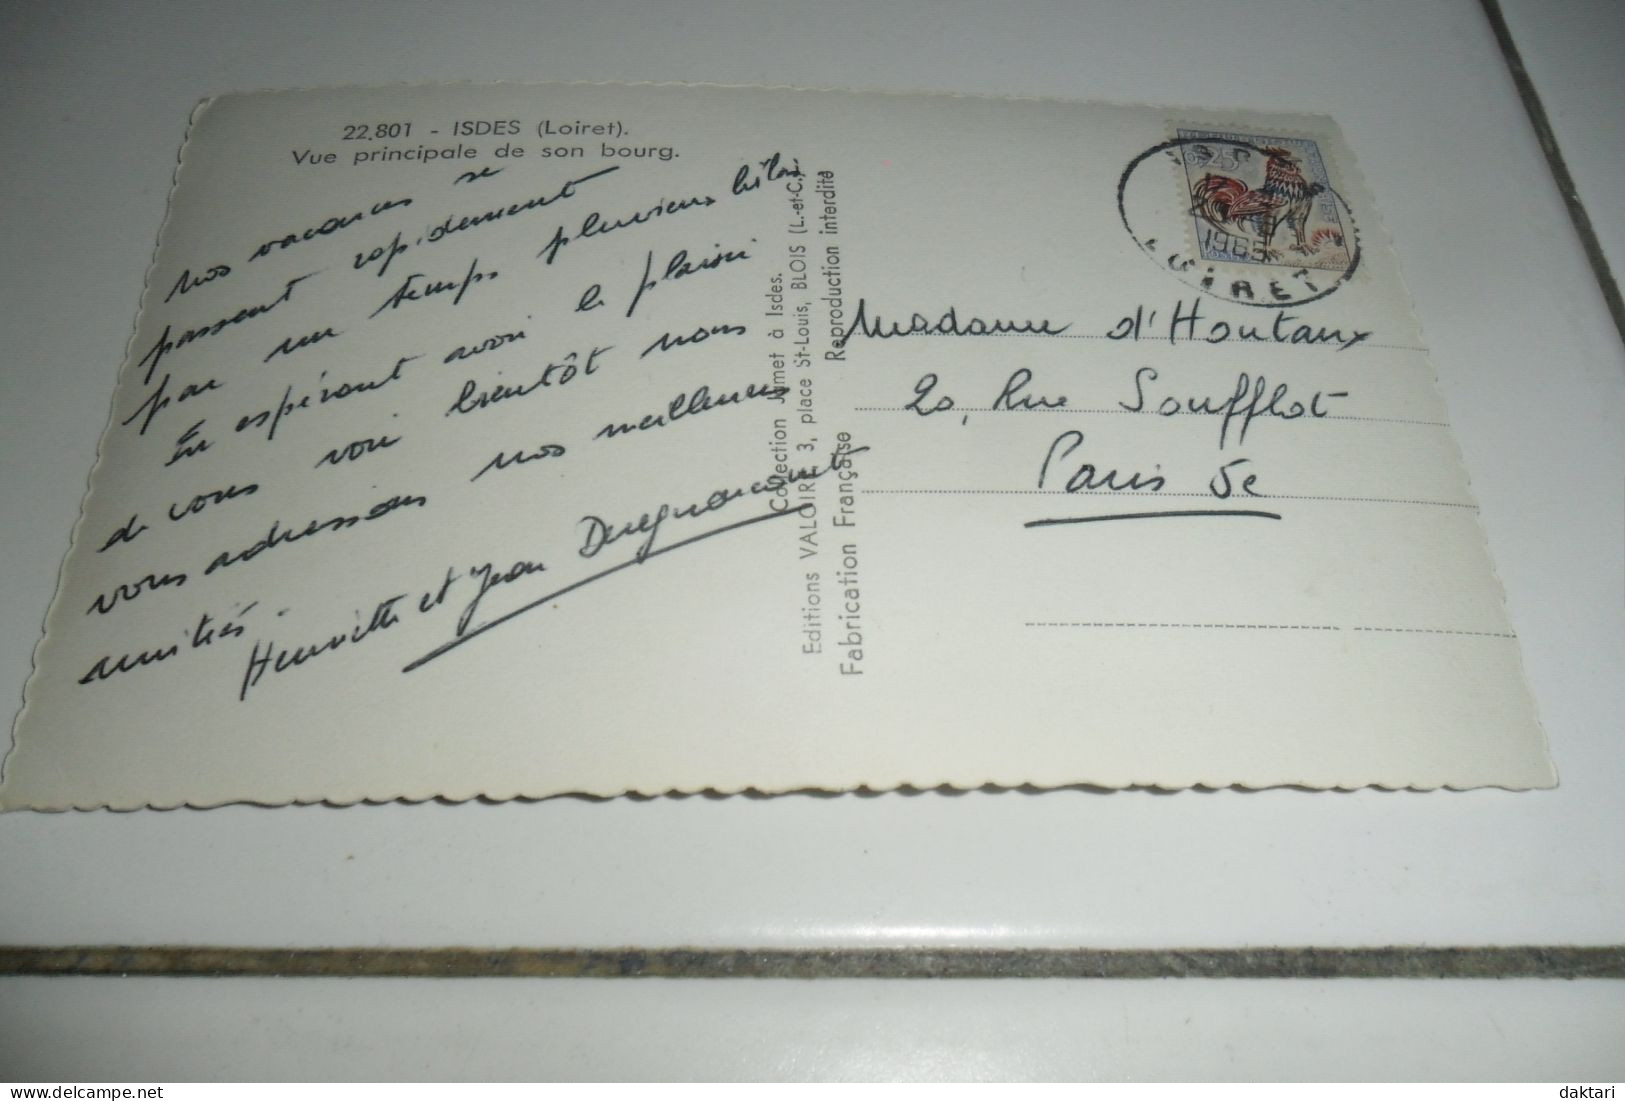 22.801 - ISDES (Loiret).
Vue principale de son bourg.
Nos vacances se
passent rapidement
par un temps pluvieux hélas
En espérant avoir le plaisir
de vous voir bientôt nous
vous adressons nos meilleures
amitiés.
Henriette et Jean
Collection Jamet à Isdes.
Editions VALOIRE 3, place St-Louis, BLOIS (L.-et-C.)
Fabrication Française Reproduction interdite
0,25
1965
LOIRET
Madame d'Houtaux
20, Rue Soufflot
Paris 5e
daktari